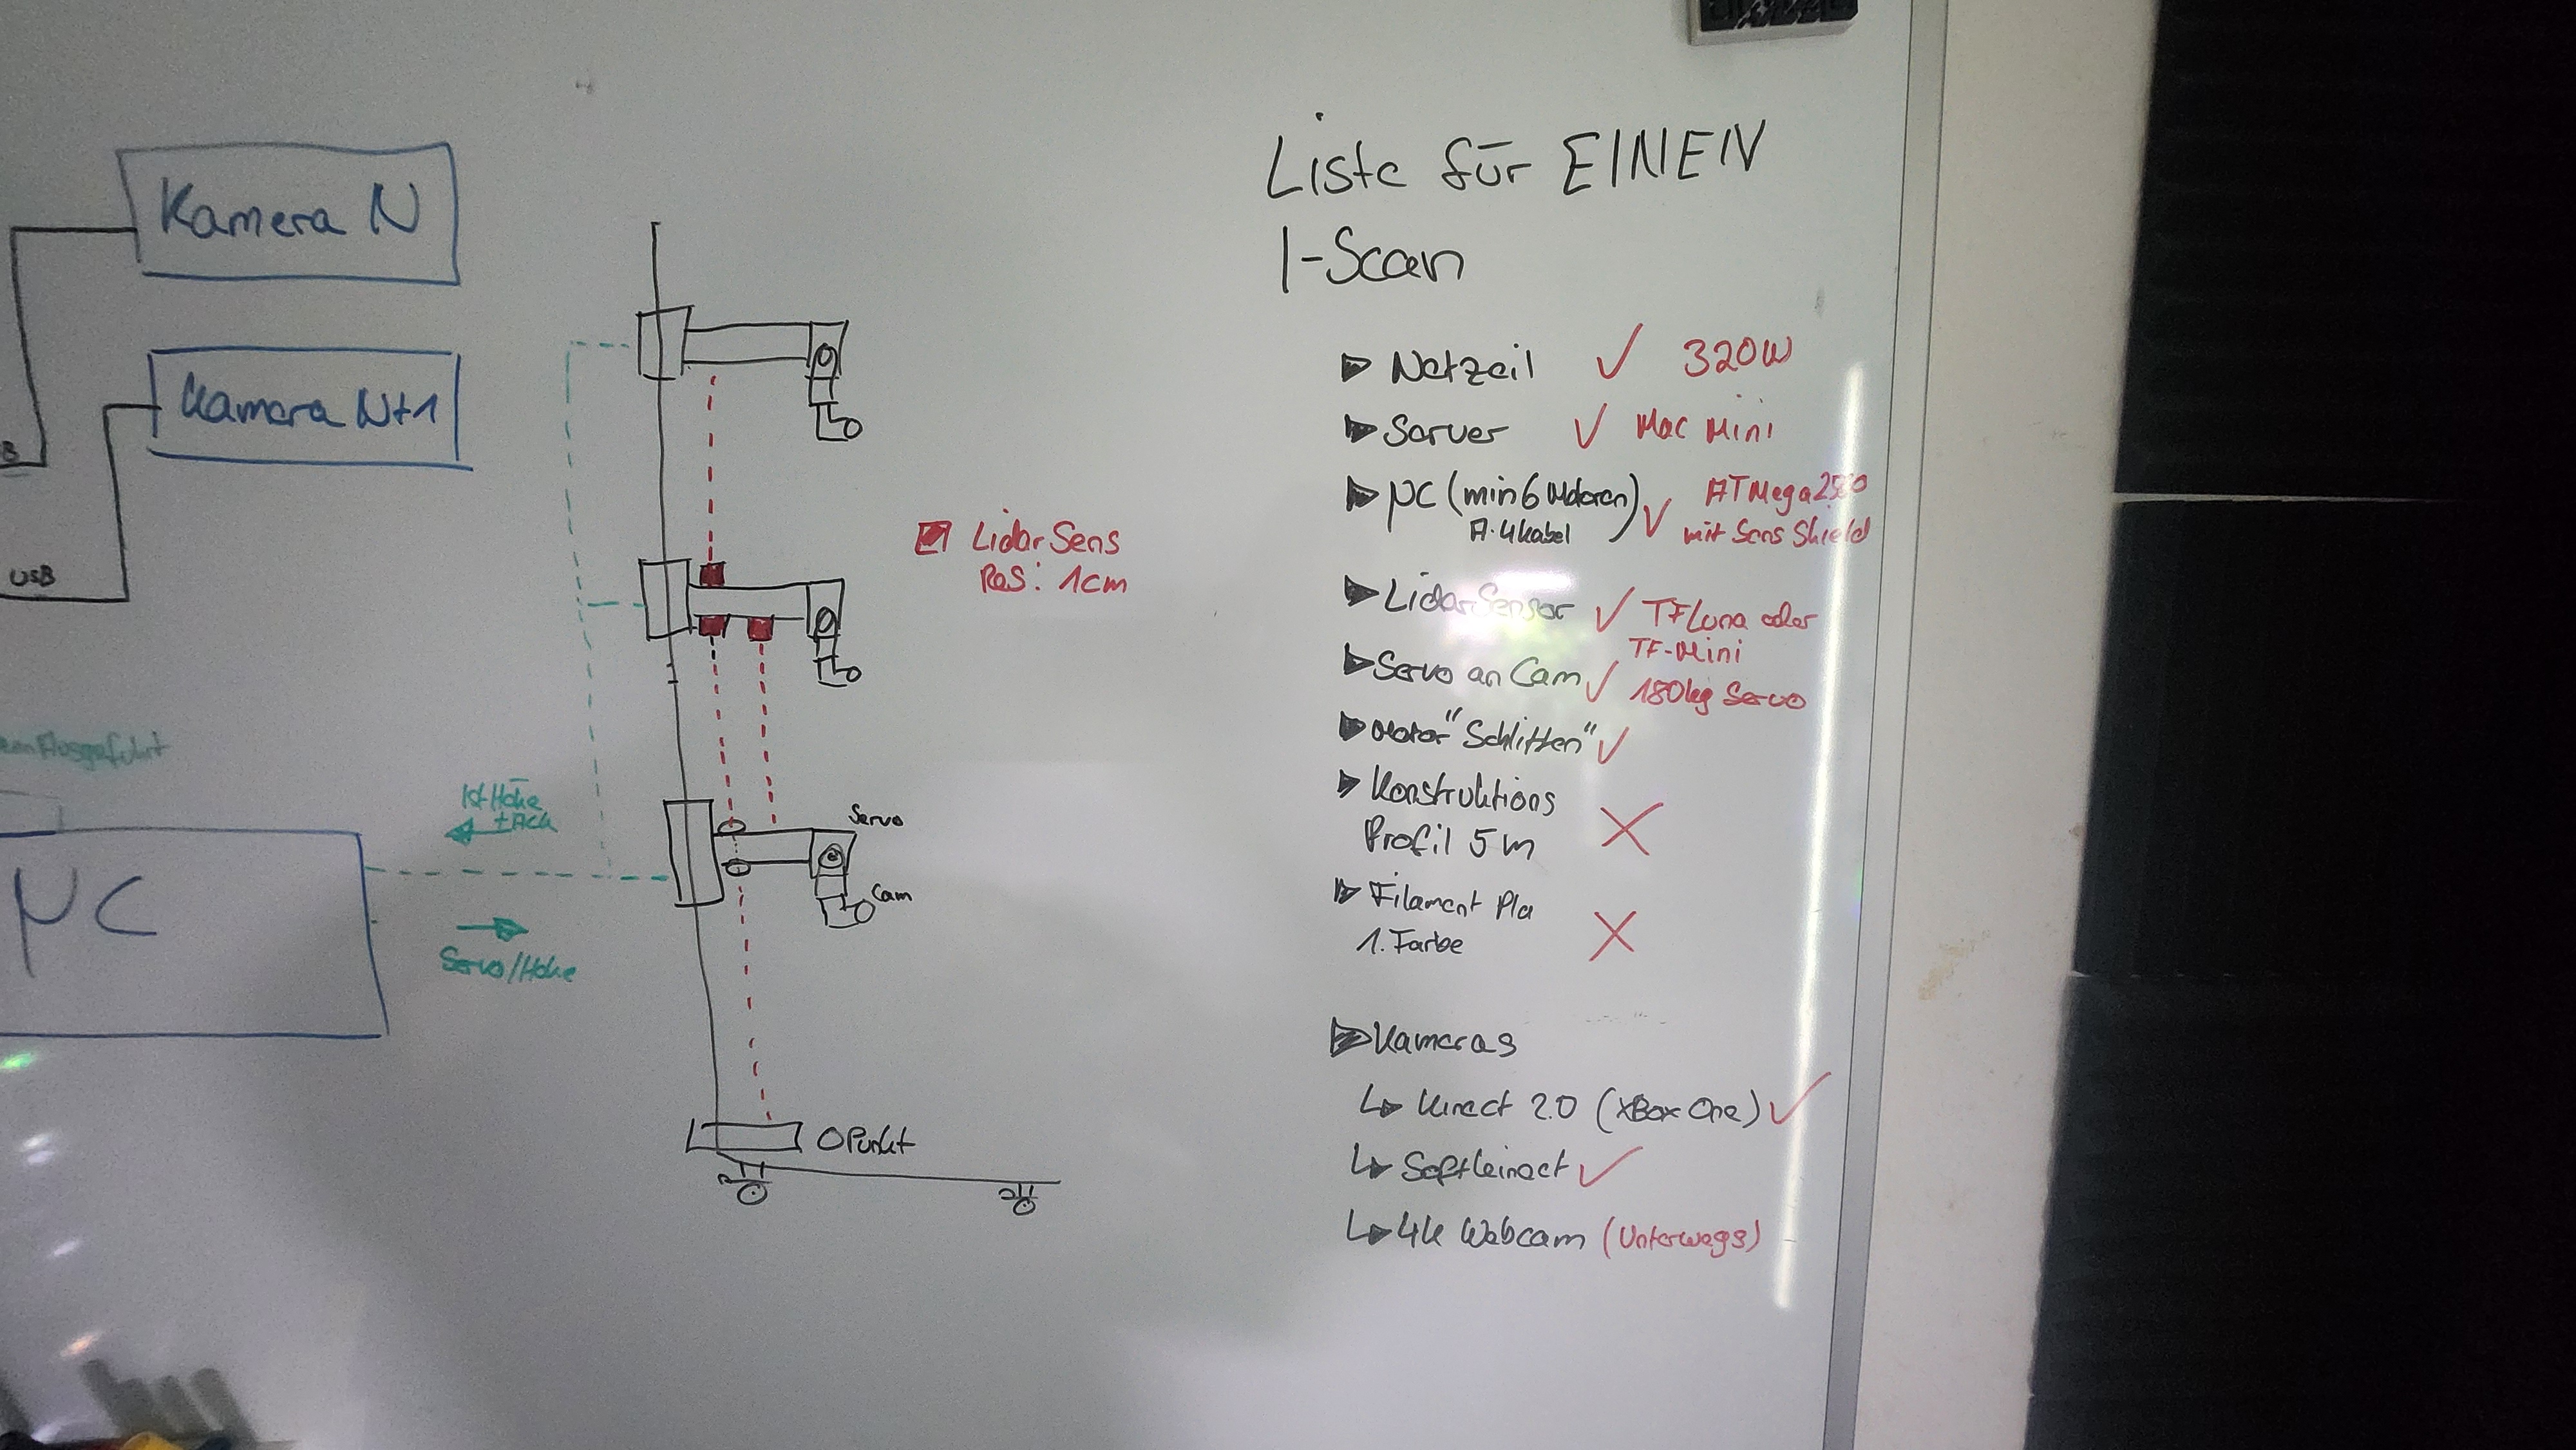 Kamera N
Kamera N+1
B
USB
Ausgeführt
µC
Ist Höhe
+ Ack
Servo/Höhe
Servo
Cam
0 Punkt
Lidar Sens
Res: 1cm
Liste für EINEN
I-Scan
Netzeil ✓ 320W
Server ✓ Mac Mini
µC (min 6 Motoren) ✓ ATMega2560
A. 4 Kabel mit Sens Shield
LidarSensor ✓ TFLuna oder
TF-Mini
Servo an Cam ✓ 180kg Servo
Motor "Schlitten" ✓
Konstruktions
Profil 5m X
Filament Pla
1. Farbe X
Kameras
↳ Kinect 2.0 (XBox One) ✓
↳ Softkinect ✓
↳ 4k Webcam (Unterwegs)